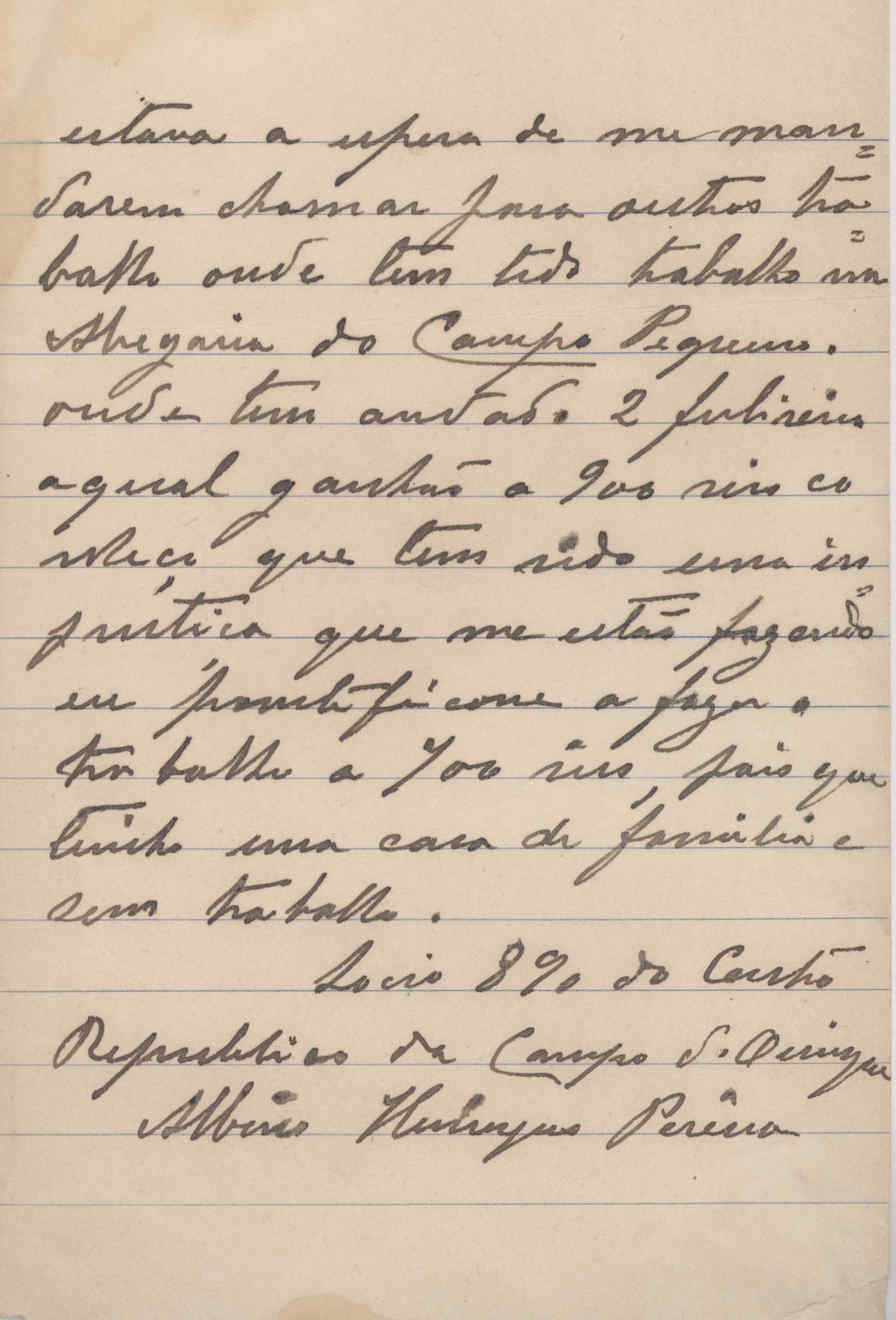 estava a espera de me man=
darem chamar para outros tra=
balho onde tem tido trabalho na
Abegaria do Campo Pequeno.
onde tem andado 2 fulineiro
aqual ganhão a 900 reis co
nheço que tem sido uma in=
justiça que me estão fazendo
eu a fazer o
tra balho a 700 reis, pois que
tenho uma casa de familia e
sem trabalho.
Socio 890 do Centro
Republicao da Campo d. Ourique
Albino Henriques Pereira